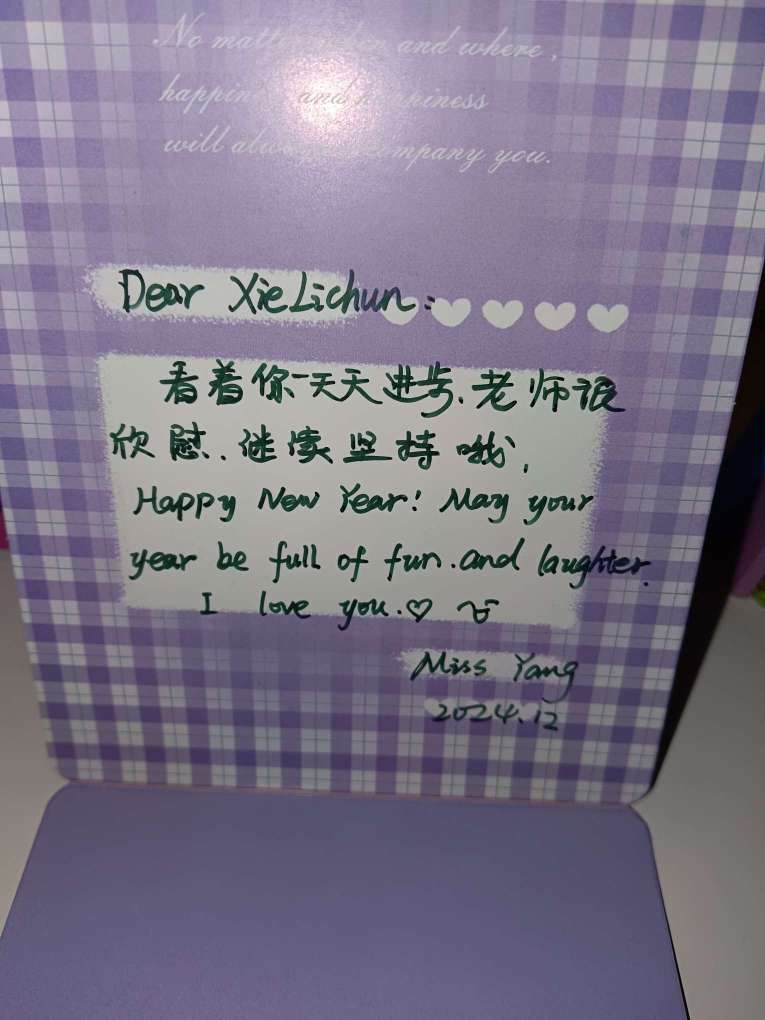 No matter when and where,
happiness and happiness
will always accompany you.
Dear XieLichun:
看着你一天天进步、老师很
欣慰、继续坚持哦,
Happy New Year! May your
year be full of fun.and laughter.
I love you.♡
Miss Yang
2024.12